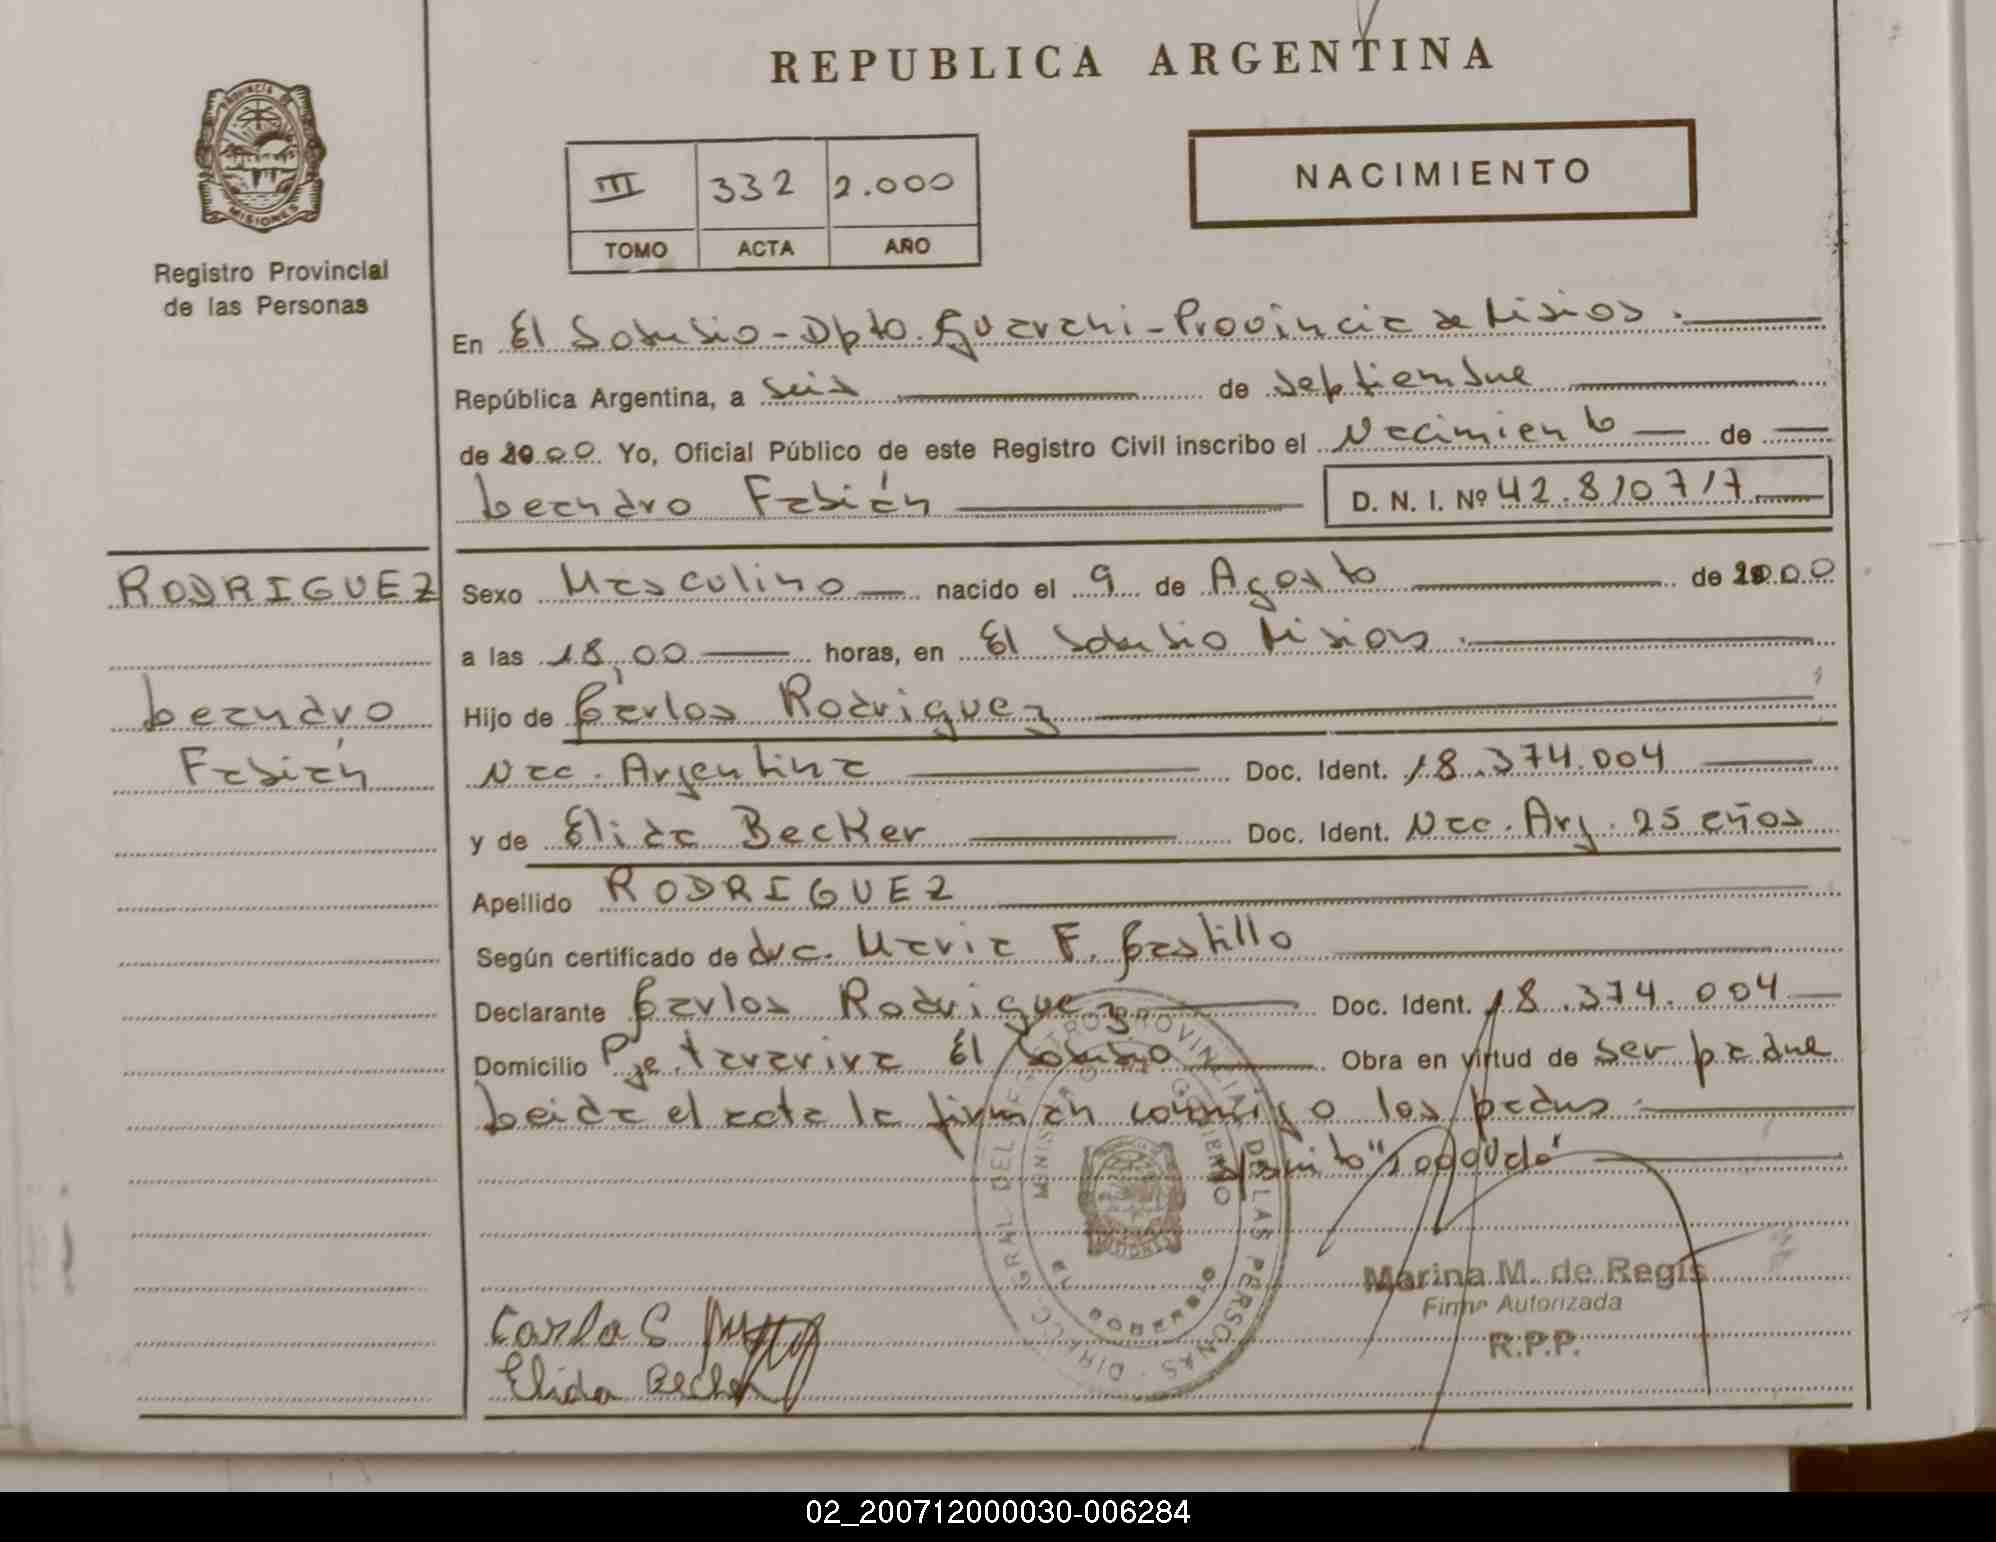 REPUBLICA ARGENTINA
PROVINCIA DE
MISIONES
Registro Provincial
de las Personas
III 332 2.000
TOMO ACTA AÑO
NACIMIENTO
En El Soberbio - Dpto. Guarani - Provincia de Misiones.
República Argentina, a seis de septiembre
de 2000 Yo, Oficial Público de este Registro Civil inscribo el Nacimiento de
Leandro Fabián D. N. I. Nº 42.810717
RODRIGUEZ
Leandro
Fabián
Sexo Masculino nacido el 9 de Agosto de 2000
a las 18,00 horas, en El Soberbio Misiones.
Hijo de Carlos Rodriguez
Nac. Argentina Doc. Ident. 18.374.004
y de Elida Becker Doc. Ident. Nac. Arg. 25 años
Apellido RODRIGUEZ
Según certificado de dra. Maria F. Castillo
Declarante Carlos Rodriguez Doc. Ident. 18.374.004
Domicilio Pje. Tararira El Soberbio Obra en virtud de ser padre
Leida el acta la firman conmigo los padres.
DIRECC. GRAL DEL REGISTRO PROVINCIAL DE LAS PERSONAS
MINISTERIO DE GOBIERNO
Marina M. de Regis
Firma Autorizada
R.P.P.
Carlos
Elida Becker
02_200712000030-006284